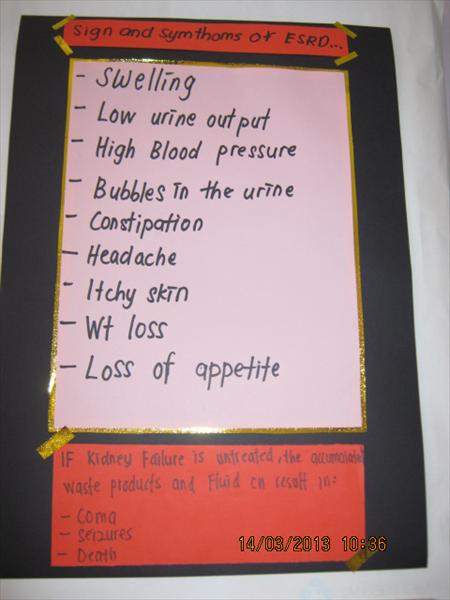 Sign and Symthoms Of ESRD...
- Swelling
- Low urine output
- High Blood pressure
- Bubbles in the urine
- Constipation
- Headache
- Itchy skin
- Wt loss
- Loss of appetite
IF Kidney Failure is untreated, the accumulated
waste products and Fluid cn result in:
- Coma
- Seizures
- Death
14/03/2013 10:36